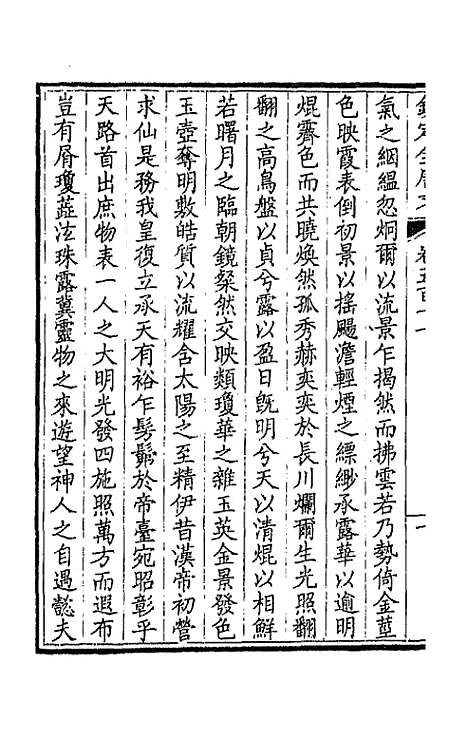 氣之絪縕忽炯爾以流景乍揭然而拂雲若乃勢倚金莖
色映霞表倒初景以搖颺澹輕煙之縹緲承露華以逾明
焜霽色而共曉煥然孤秀赫奕奕於長川爛爾生光照翻
翻之高鳥盤以貞兮露以盈日旣明兮天以清焜以相鮮
若曙月之臨朝鏡粲然交映類瓊華之雜玉英金景發色
玉壺奪明敷皓質以流耀含太陽之至精伊昔漢帝初營
求仙是務我皇復立承天有裕乍髣髴於帝臺宛昭彰乎
天路首出庶物表一人之大明光發四施照萬方而遐布
豈有屑瓊蕋泫珠露冀靈物之來遊望神人之自遇懿夫